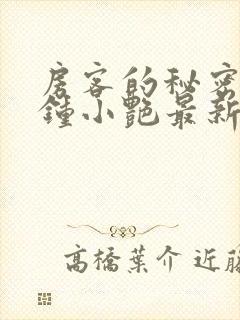 房客的秘密
鍾小艷最新
高橋葉介 近藤